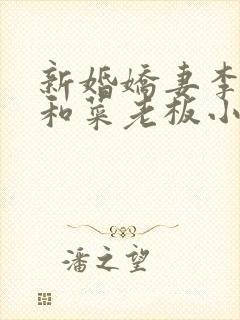 新婚嬌妻李
和菜老板小
潘之望